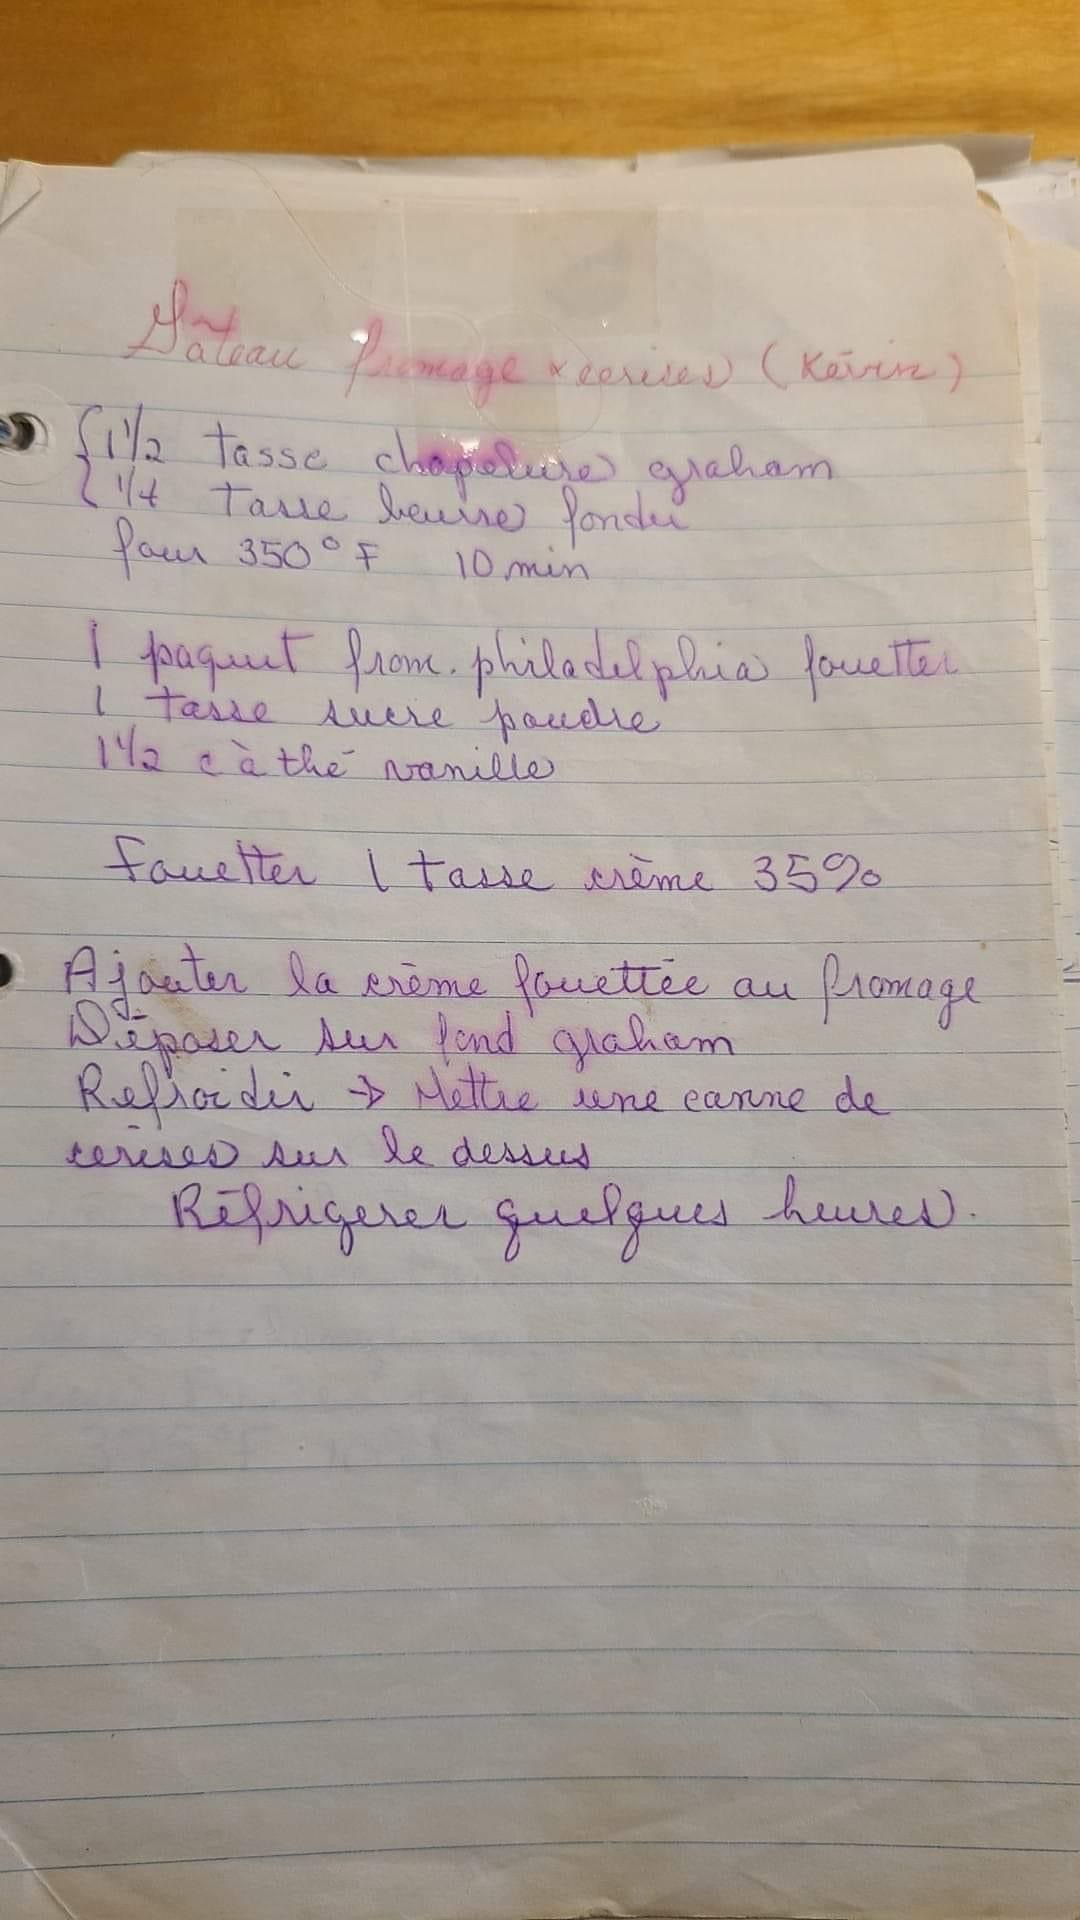 Gâteau fromage x cerises (Kévin)
1 1/2 tasse chapelure graham
1/4 tasse beurre fondu
four 350°F 10 min
1 paquet from. philadelphia fouetter
1 tasse sucre poudre
1 1/2 c à thé vanille
Fouetter 1 tasse crème 35%
Ajouter la crème fouettée au fromage
Déposer sur fond graham
Refroidir → Mettre une canne de
cerises sur le dessus
Réfrigerer quelques heures.